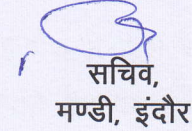 सचिव,
मण्डी, इंदौर